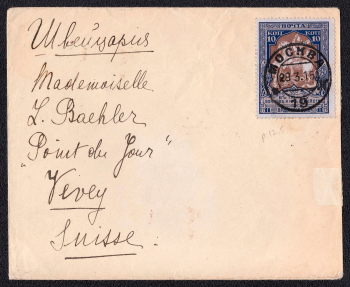 ПОЧТА
КОП 10 10 КОП
МОСКВА
23.3.15
19
Швейцарія
Mademoiselle
L. Baehler
„Point du Jour"
Vevey
Suisse.